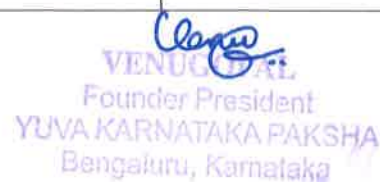 VENUGOPAL
Founder President
YUVA KARNATAKA PAKSHA
Bengaluru, Karnataka